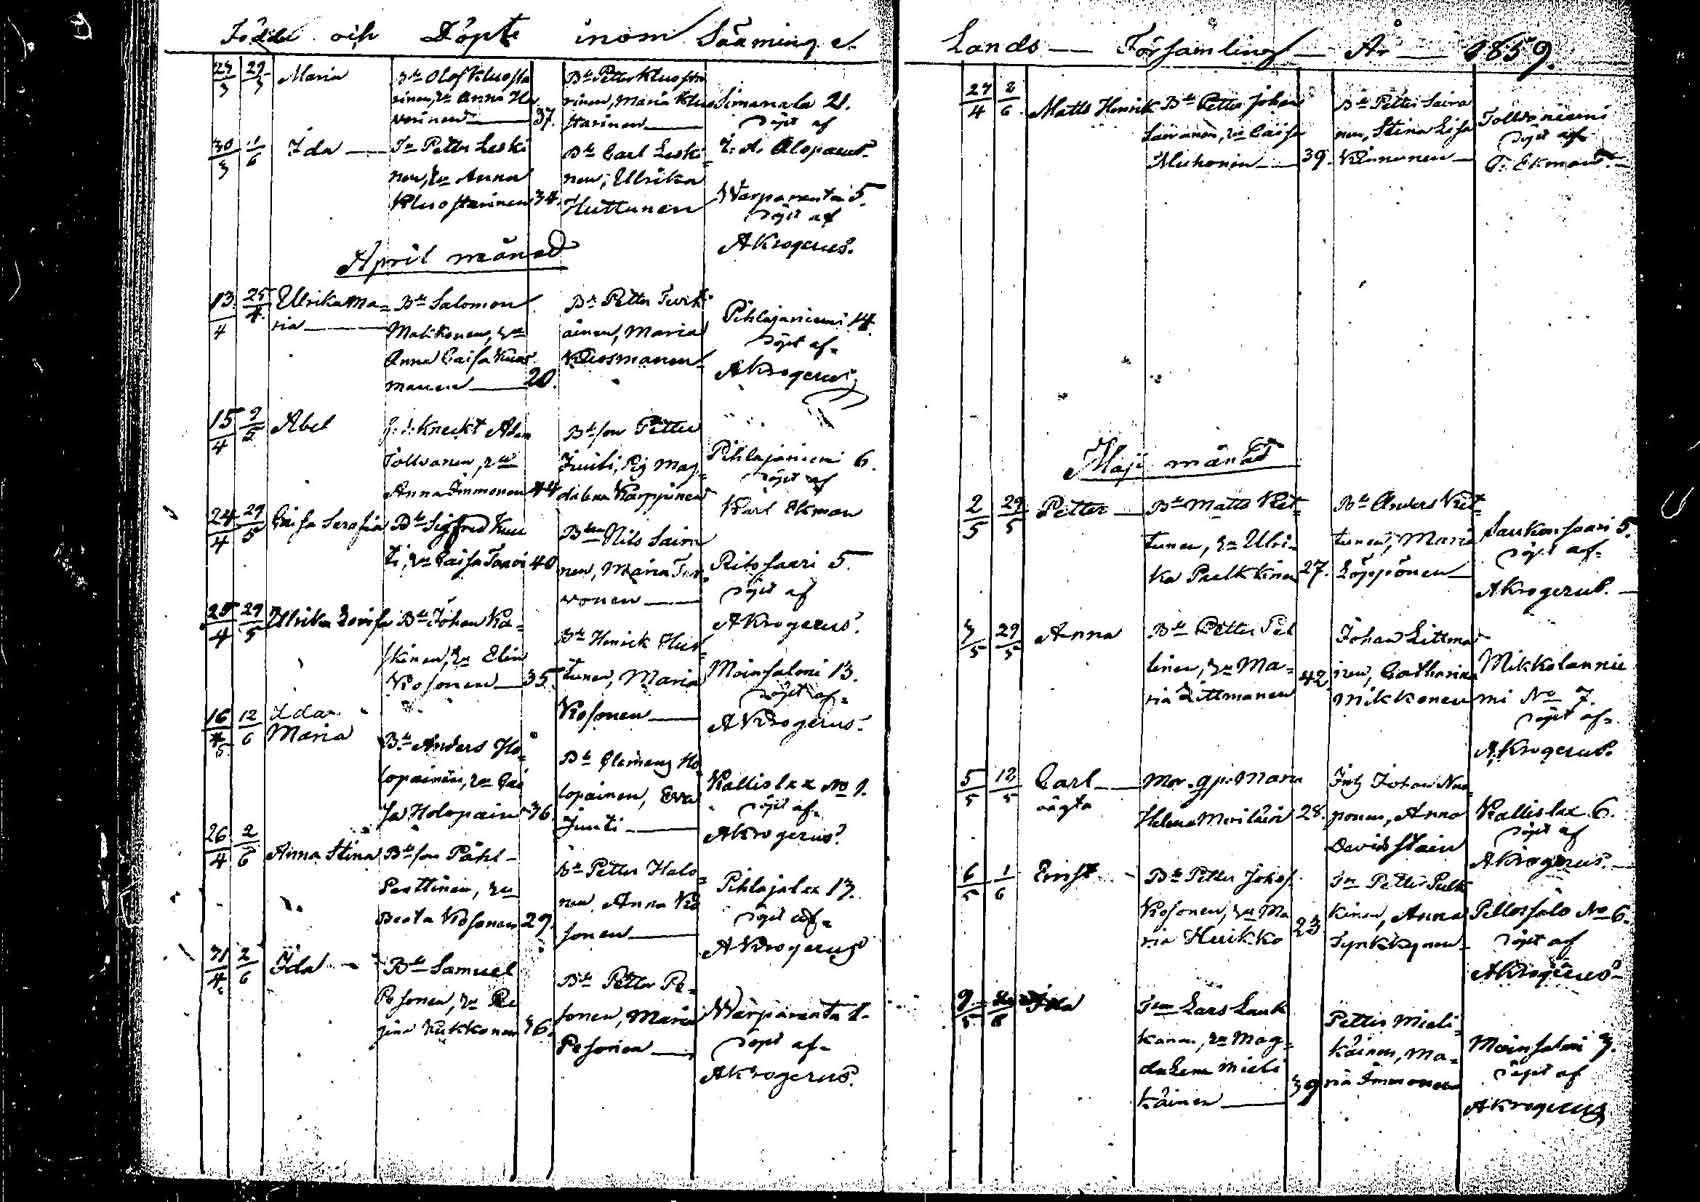 Födde och Döpte inom Sääminge
Lands Församling År 1859.
27/3 29/3 Maria
Bd Olof Kluusta
rinen, hu Anna Ha
verinen 37.
Bd Petter Kluusta
rinen, Maria Kluu
starinen
Simanala 21.
döpt af
30/3 1/6 Ida
Petter Leski
nen, hu Anna
Kluustarinen 34.
Bd Carl Leski
nen, Ullrika
Huttunen
Warparanta 5.
döpt af
AKrogerus.
April månad
13/4 25/4 Ullrika Ma=
ria
Bd Salomon
Makkonen, hu
Anna Caisa Kuos
manen 20.
Bd Petter Turti
ainen, Maria
Kuosmanen
Pihlajaniemi 14.
döpt af
AKrogerus
15/4 9/5 Abel
knecht
Tolvanen, hu
Anna Immonen 44
Bdson Petter
Juuti, Pig Mag
dalena Karppinen
Pihlajaniemi 6.
döpt af
Karl Ekman
24/4 29/5 Caisa Serafia
Bd Sigfred Kuu
ti, hu Caisa 40
Bd Nils Saira
nen, Maria Tur
vonen
Ritosaari 5.
döpt af
AKrogerus.
25/4 29/5 Ullrika Lovisa
Bd Johan Ka=
skinen, hu Elin
Kosonen 35.
Bd Henrick Hut
tunen, Maria
Kosonen
Moinsalmi 13.
döpt af
AKrogerus.
16/5 12/6 Ida
Maria
Bd Anders Ho
lopainen, hu Cai
sa Holopain 36.
Bd Clemeng Ho
lopainen, Eva
Juuti
Kallislax No 9.
döpt af
AKrogerus.
26/4 2/6 Anna Stina
Bdson Påhl
Puttinen, hu
Beata Kosonen 29.
Bd Petter Halo
nen, Anna Ko
sonen
Pihlajalax 13.
döpt af
AKrogerus
2/6 Ida
Bd Samuel
Pesonen, hu Re
gina Kukkonen 36.
Bd Petter Pe=
sonen, Maria
Pesonen
Warparanta 1.
döpt af
AKrogerus.
27/4 2/6 Matts Henrik
Bd Petter Johan
Sairanen, hu Caisa
Muhonen 39.
Bd Petter Saira
nen, Stina Lisa
Kinnunen
Tolvaniemi
döpt af
Ekman.
Maji månad
2/5 29/5 Petter
Bd Matts Kiet
tunen, hu Ulri=
ka Pulkkinen 27.
Bd Anders Kiet
tunen, Maria
Löppönen
Laukansaari 5.
döpt af
AKrogerus.
3/5 29/5 Anna
Bd Petter Pel
linen, hu Ma=
ria Littmanen 42
Johan Littma
nen, Catharina
Mikkonen
Mikkolannie
mi No 7.
döpt af
AKrogerus.
5/5 12/5 Carl
oägta
Maria
Helena 28.
Inh Johan Nuu
ponen, Anna
Davidstain
Kallislax 6.
döpt af
AKrogerus.
6/5 1/6 Ernst
Bd Petter Johs
Kosonen, hu Ma
ria Heikko 23
Petter Pulk
kinen, Anna
Tynkkynen
Pellossalo No 6.
döpt af
AKrogerus
9/5 Ida
Lars Lauk
kanen, hu Mag=
dalena Mieli
käinen 39
Petter Mieli=
käinen, Ma=
ria Immonen
Moinsalmi 3.
döpt af
AKrogerus